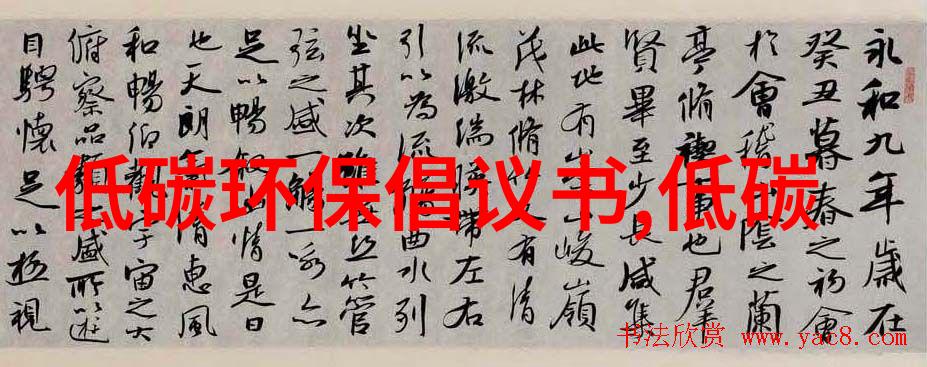 永和九年歲在
癸丑暮春之初會
於會稽山陰之蘭
亭脩禊事也羣
賢畢至少長咸集
此地有山峻嶺
茂林脩竹又有清
流激湍暎帶左右
引以為流曲水列
坐其次雖絲竹管
弦之盛一觴一詠亦
足以暢敘情是日
也天朗氣清惠風
和暢仰觀宇宙之大
俯察品類盛所以遊
目騁懷足以極視
低碳环保倡议书,低碳
书法欣赏 www.yac8.com